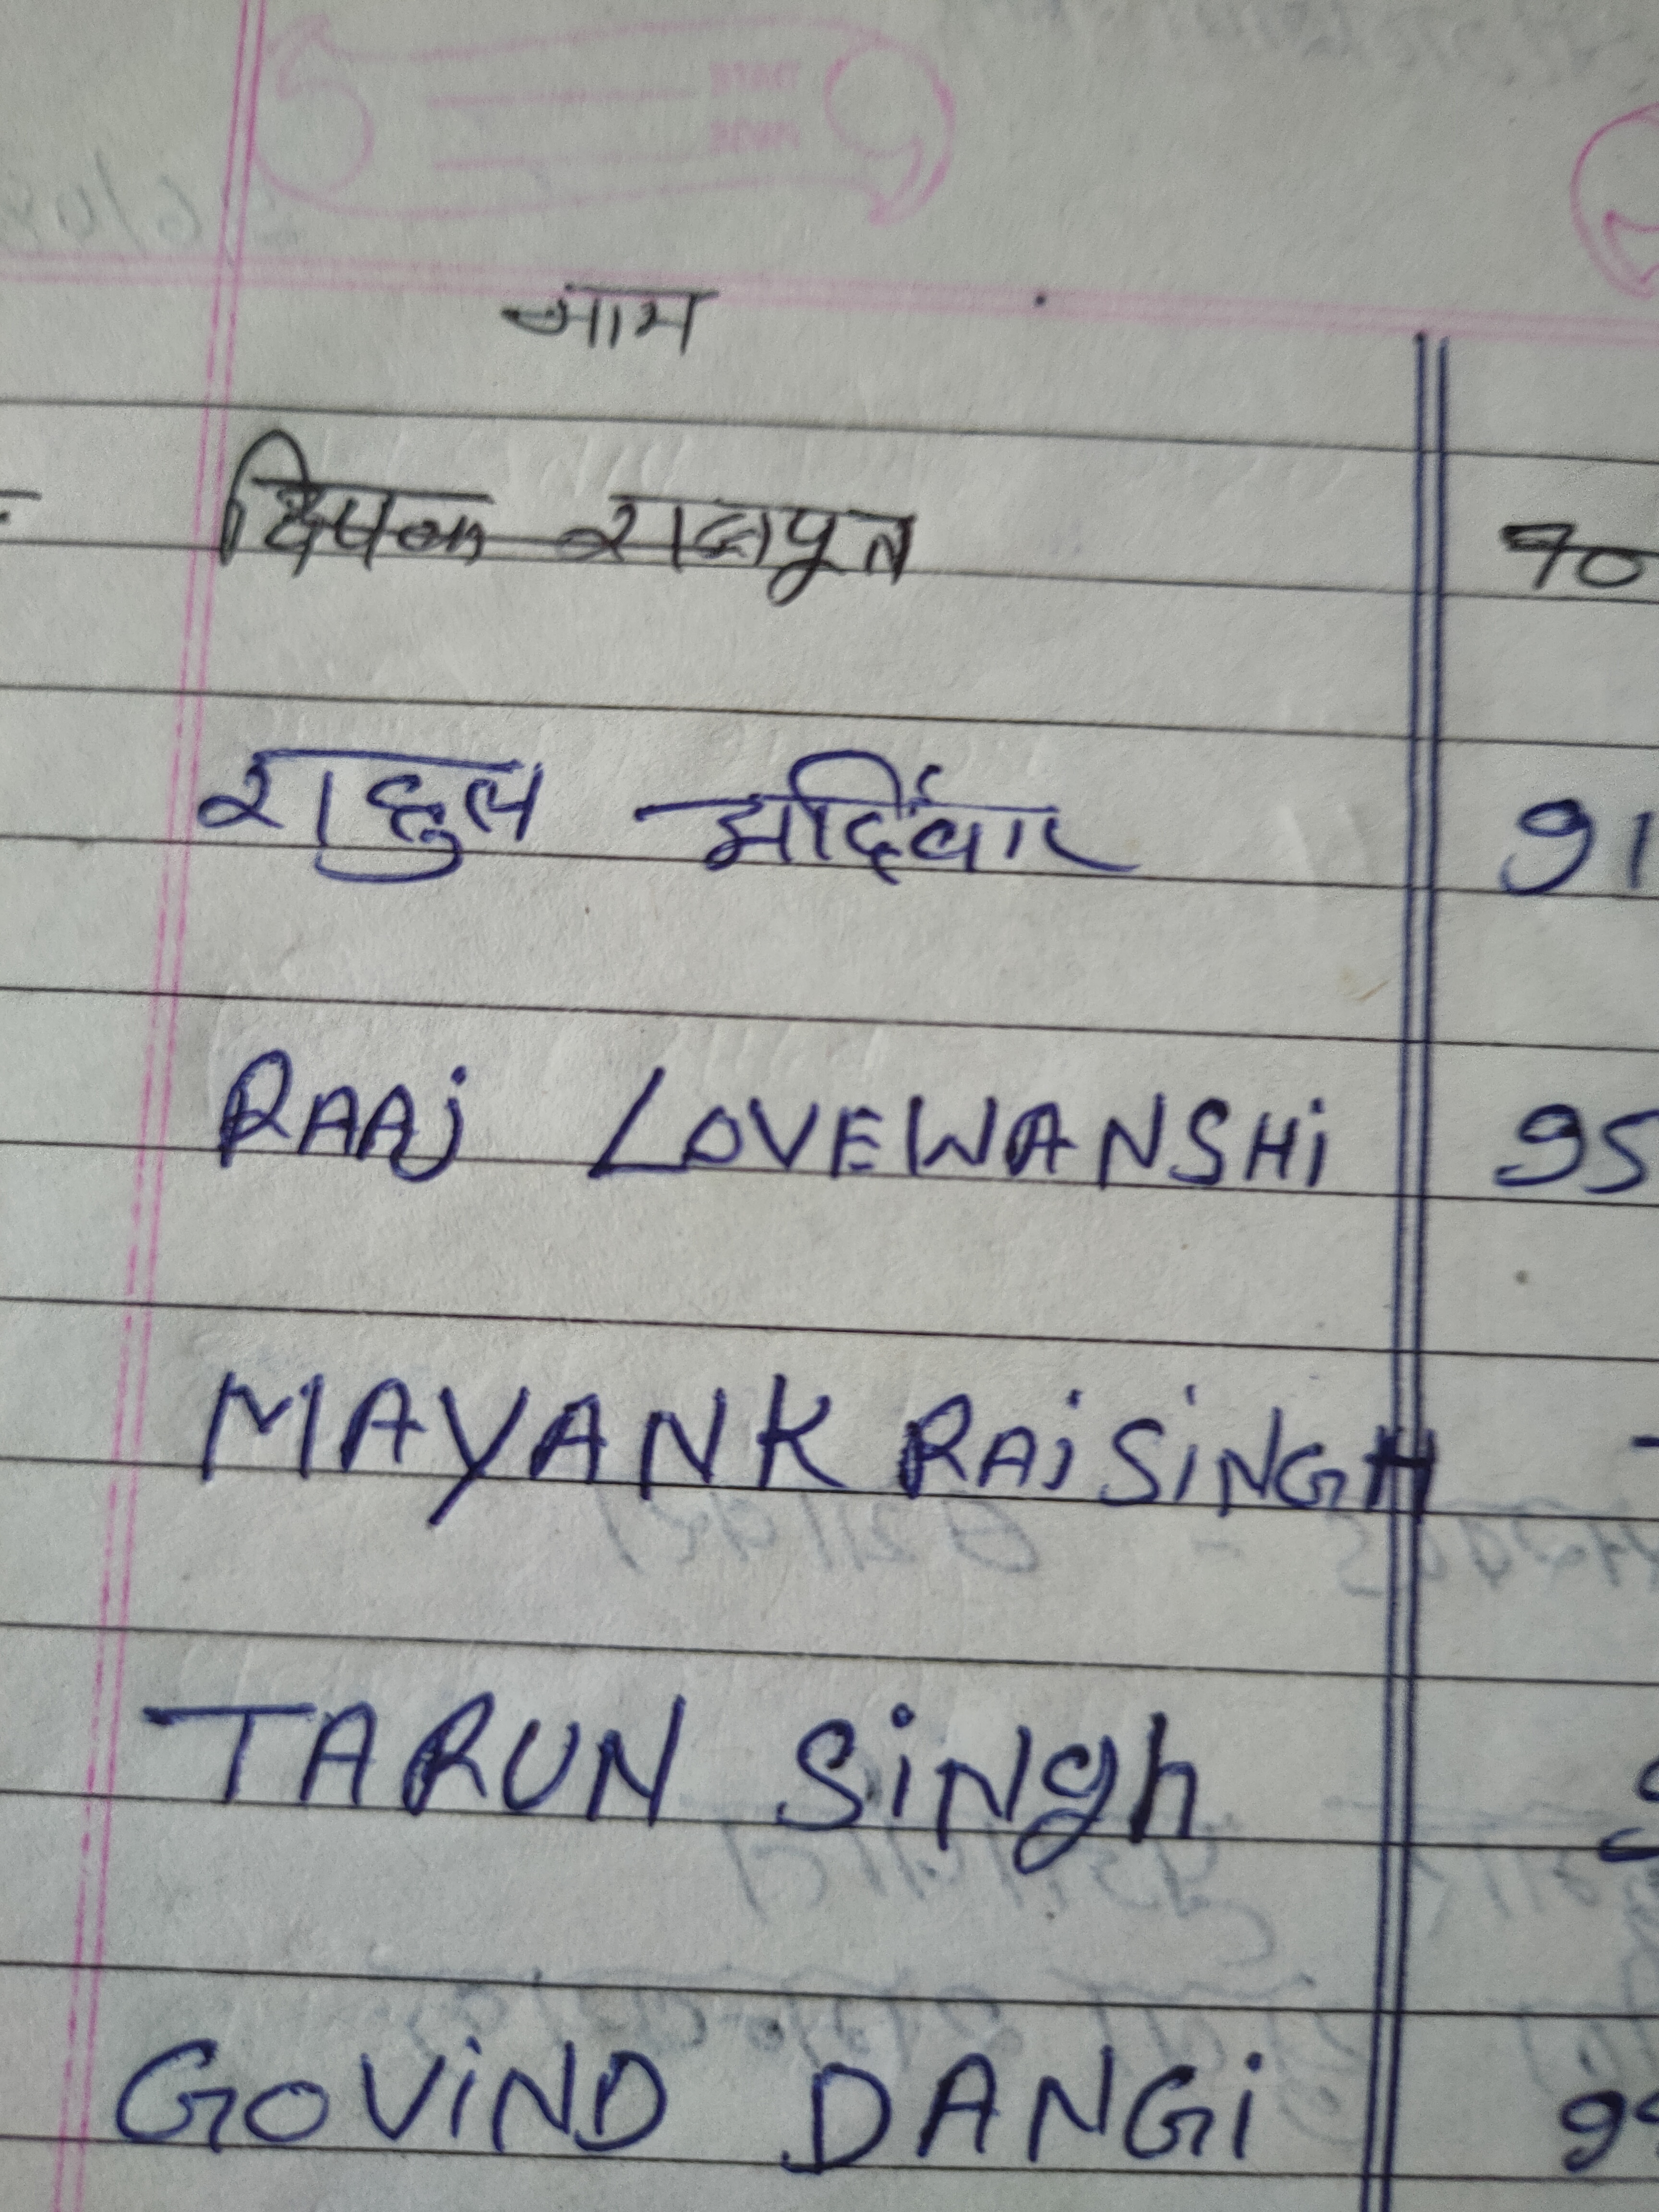 नाम
दिपक राजपूत 90
राहुल 91
RAAj LOVEWANSHi 95
MAYANK RAiSiNGH
TARUN SiNgh
GOViND DANGi